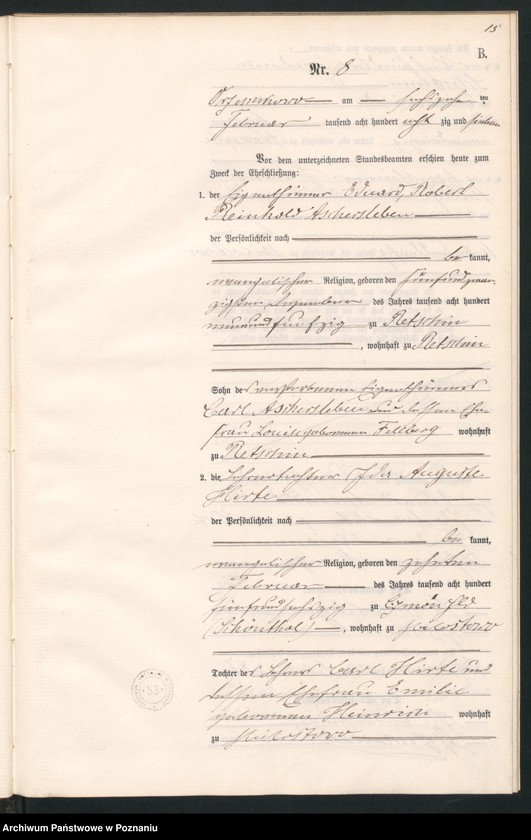 15
B.
Nr. 8
am sechszehn ten
Februar tausend acht hundert acht zig und sieben
Vor dem unterzeichneten Standesbeamten erschien heute zum
Zweck der Eheschließung:
1. der Eigenthümer Eduard, Robert
Reinhold Aschersleben
der Persönlichkeit nach
be kannt,
evangelischer Religion, geboren den fünfundzwan-
zigsten Dezember des Jahres tausend acht hundert
neunundfünfzig zu Retschin
, wohnhaft zu Retschin
Sohn des verstorbenen Eigenthümers
Carl Aschersleben und dessen Ehe
frau Louise geborenen Fellberg wohnhaft
zu Retschin
2. die Ida Auguste
Hirte
der Persönlichkeit nach
be kannt,
evangelischer Religion, geboren den zehnten
Februar des Jahres tausend acht hundert
fünfundsechzig zu
(Schönthal) , wohnhaft zu Milostowo
Tochter des Carl Hirte und
dessen Ehefrau Emilie
geborenen Heinrich wohnhaft
zu Milostowo
53
Archiwum Państwowe w Poznaniu